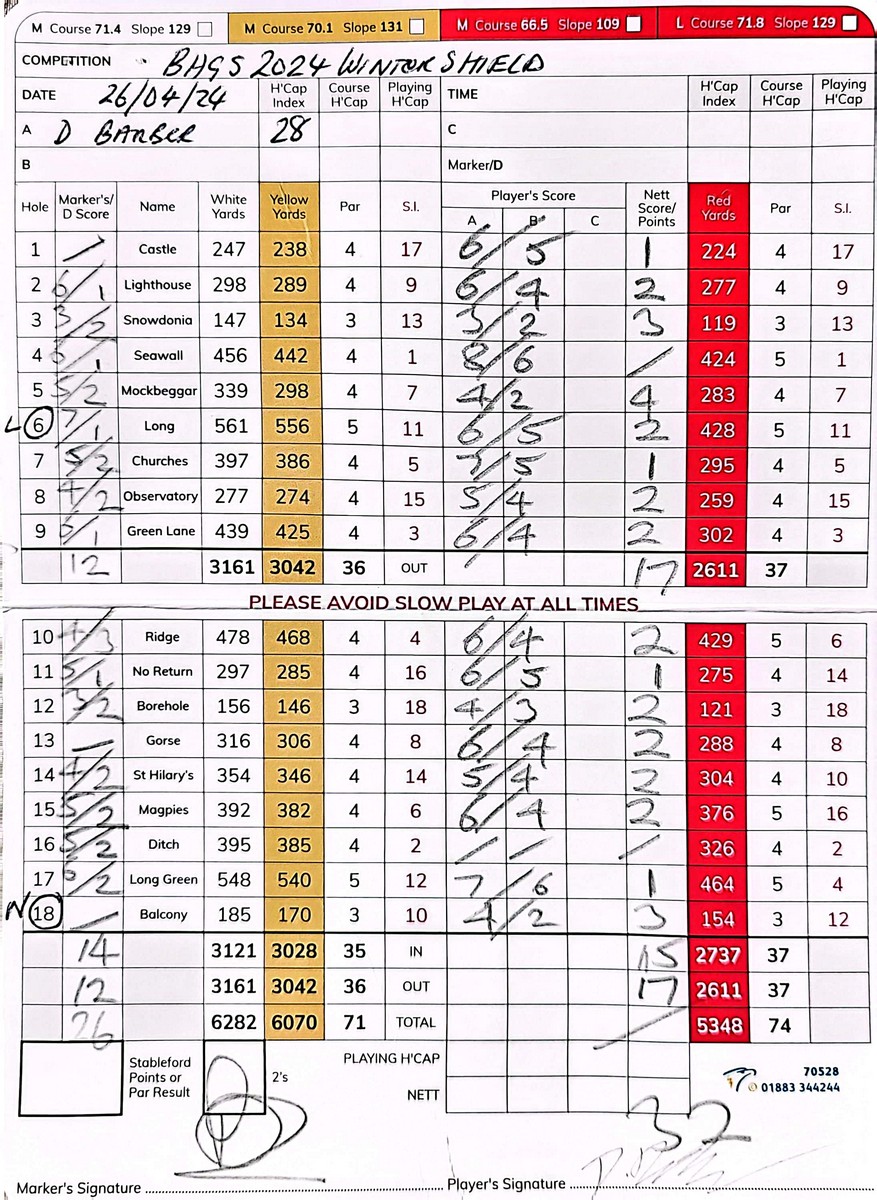 M Course 71.4 Slope 129 M Course 70.1 Slope 131 M Course 66.5 Slope 109 L Course 71.8 Slope 129
COMPETITION BHGS 2024 WINTER SHIELD
DATE 26/04/24 H'Cap Index Course H'Cap Playing H'Cap TIME H'Cap Index Course H'Cap Playing H'Cap
A D BARBER 28 C
B Marker/D
Hole Marker's/ D Score Name White Yards Yellow Yards Par S.I. Player's Score A B C Nett Score/ Points Red Yards Par S.I.
1 / Castle 247 238 4 17 6/5 1 224 4 17
2 6/1 Lighthouse 298 289 4 9 6/4 2 277 4 9
3 3/2 Snowdonia 147 134 3 13 3/2 3 119 3 13
4 6/1 Seawall 456 442 4 1 8/6 / 424 5 1
5 5/2 Mockbeggar 339 298 4 7 4/2 4 283 4 7
L 6 7/1 Long 561 556 5 11 6/5 2 428 5 11
7 5/2 Churches 397 386 4 5 7/5 1 295 4 5
8 4/2 Observatory 277 274 4 15 5/4 2 259 4 15
9 6/1 Green Lane 439 425 4 3 6/4 2 302 4 3
12 3161 3042 36 OUT 17 2611 37
PLEASE AVOID SLOW PLAY AT ALL TIMES
10 4/3 Ridge 478 468 4 4 6/4 2 429 5 6
11 5/1 No Return 297 285 4 16 6/5 1 275 4 14
12 3/2 Borehole 156 146 3 18 4/3 2 121 3 18
13 / Gorse 316 306 4 8 6/4 2 288 4 8
14 4/2 St Hilary's 354 346 4 14 5/4 2 304 4 10
15 5/2 Magpies 392 382 4 6 6/4 2 376 5 16
16 5/2 Ditch 395 385 4 2 / / / 326 4 2
17 6/2 Long Green 548 540 5 12 7/6 1 464 5 4
N 18 / Balcony 185 170 3 10 4/2 3 154 3 12
14 3121 3028 35 IN 15 2737 37
12 3161 3042 36 OUT 17 2611 37
26 6282 6070 71 TOTAL / 5348 74
Stableford Points or Par Result 2's PLAYING H'CAP 70528
NETT 01883 344244
32
Marker's Signature Player's Signature